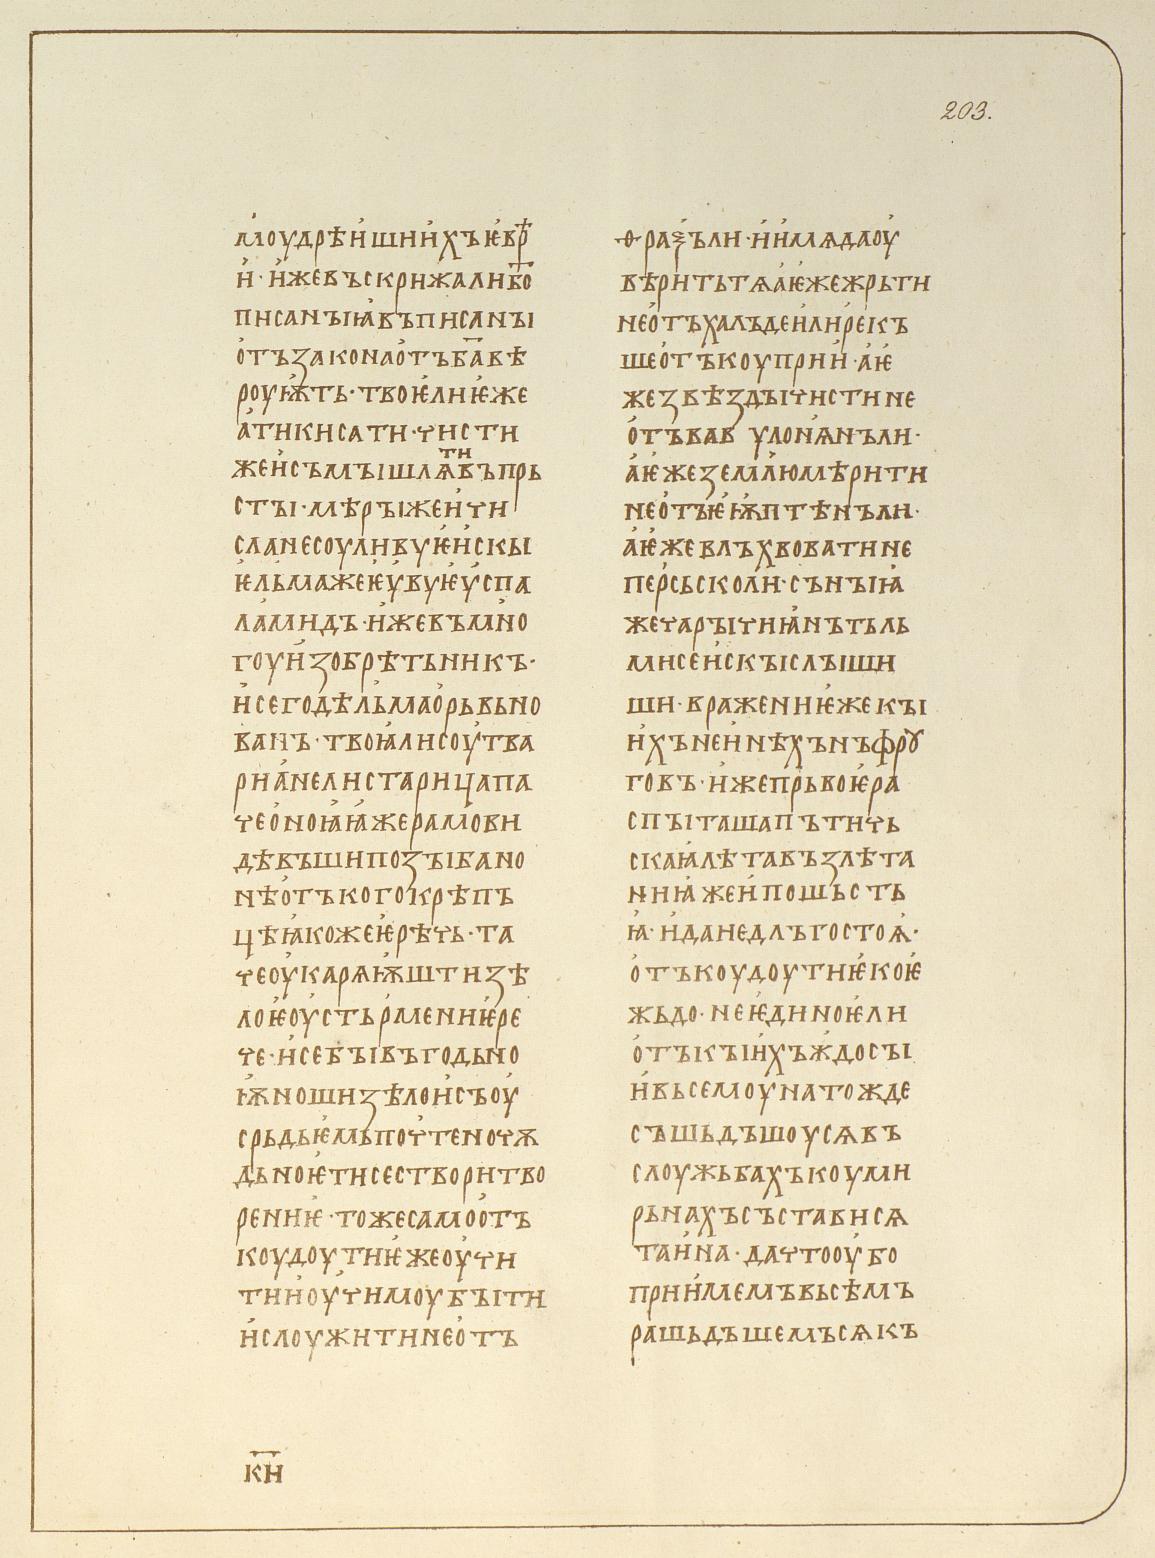 203.
моудрѣишиихъѥвр҃
и·ижевъскрижалибо҃
писанъіꙗвъписанъі
отъзаконаотъба҃вѣ
роуѭть·твоѥлиѥже
атикисати·чисти
жеисъмъішлꙗтивъпрь
стъі·мѣръіжеичи
сланесоуливуѥискы
ѥльмажеѥувуѥуспа
ламидъ·ижевъмно
гоуизобрѣтьникъ·
исегодѣльмаорьвьно
ванъ·твоꙗлисоутва
рианелистарицапа
чеоноꙗꙗжерамови
дѣвъшипозъівано
нѣотъкогокрѣпъ
цѣꙗкожеѥрѣчь·та
чеоукарѧѭштизѣ
лоѥоустьрмениѥре
че·исебъівъгодьно
ѭношизѣлоисъоу
срьдьѥмьпочтеночѫ
дьноѥтисестворитво
рениѥ·тожесамоотъ
коудоутиѥжеоучи
тииоучимоубъіти
ислоужитинеотъ
ѳраѯъли·иимѧдаоу
вѣритьтѧаѥжежрьти
неотъхалъдеилирекъ
шеотъкоуприи·аѥ
жезвѣздъічистине
отъвавулонѧнъли·
аѥжеземлюмѣрити
неотъѥѭптѣнъли·
аѥжевлъхвоватине
персьсколи·сънъіꙗ
жечаръічиꙗнътьль
мисеискъіслъіши
ши·вражениѥжекъі
ихънеинѣхънъфрꙋ
говъ·ижепрьвоѥра
спъіташапътичь
скаꙗлѣтавъзлѣта
ниꙗжеипошьсть
ꙗ·иданедлъгостоѧ·
отъкоудоутиѥкоѥ
жьдо·неѥдиноѥли
отъкъіихъждосъі
ивьсемоунатожде
съшьдъшоусѧвъ
слоужьбахъкоуми
рьнахъсъстависѧ
таина·дачтооубо
приимемъвьсѣмъ
рашьдъшемъсѧкъ
к҃и